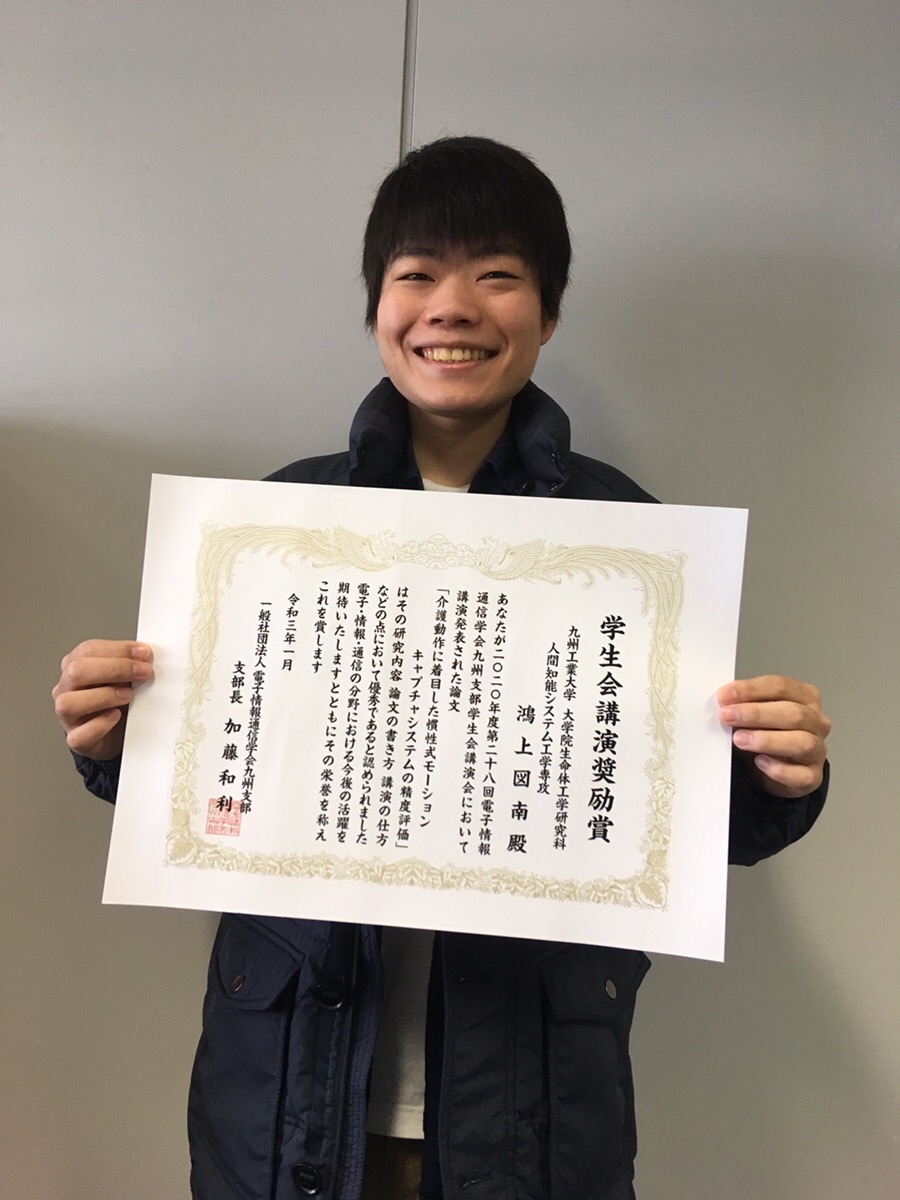 学生会講演奨励賞
九州工業大学 大学院生命体工学研究科
人間知能システム工学専攻
鴻上図南殿
あなたが二〇二〇年度第二十八回電子情報
通信学会九州支部学生会講演会において
講演発表された論文
「介護動作に着目した慣性式モーション
キャプチャシステムの精度評価」
はその研究内容 論文の書き方 講演の仕方
などの点において優秀であると認められました
電子・情報・通信の分野における今後の活躍を
期待いたしますとともにその栄誉を称え
これを賞します
令和三年一月
一般社団法人 電子情報通信学会九州支部
支部長 加藤和利